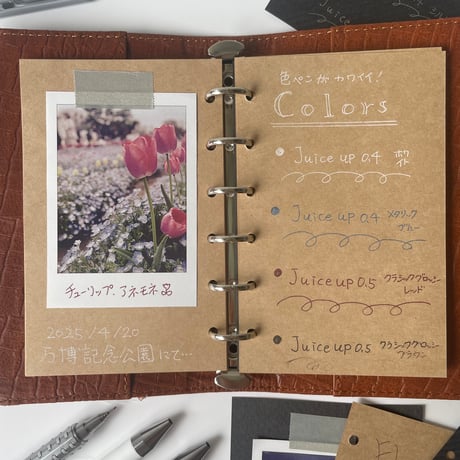 チューリップ、アネモネ
2025/4/20
万博記念公園にて…
色ペンがカワイイ!
Colors
Juice up 0.4 ホワイト
Juice up 0.4 メタリックブルー
Juice up 0.5 クラシックグロッシーレッド
Juice up 0.5 クラシックグロッシーブラウン
Juice